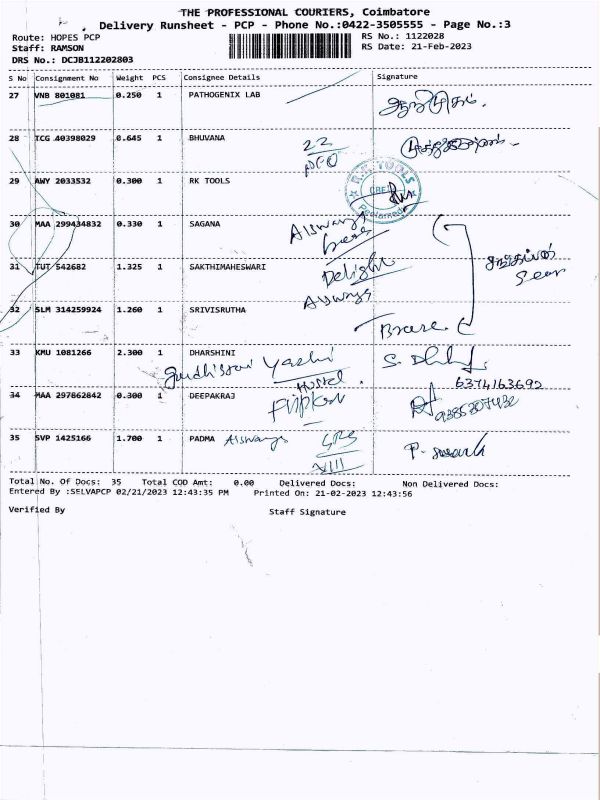 THE PROFESSIONAL COURIERS, Coimbatore
Delivery Runsheet - PCP - Phone No.:0422-3505555 - Page No.:3
Route: HOPES PCP
Staff: RAMSON
DRS No.: DCJB112202803
RS No.: 1122028
RS Date: 21-Feb-2023
S No Consignment No Weight PCS Consignee Details Signature
27 VNB 801081 0.250 1 PATHOGENIX LAB
28 TCG 40398029 0.645 1 BHUVANA 22
29 AWY 2033532 0.300 1 RK TOOLS
R.K. TOOLS
CBE
Peelamedu
30 MAA 299434832 0.330 1 SAGANA
31 TUT 542682 1.325 1 SAKTHIMAHESWARI Delight
32 SLM 314259924 1.260 1 SRIVISRUTHA
33 KMU 1081266 2.300 1 DHARSHINI
Hostel
6374163692
34 MAA 297862842 0.300 1 DEEPAKRAJ
9385207432
35 SVP 1425166 1.700 1 PADMA
VIII
Total No. Of Docs: 35 Total COD Amt: 0.00 Delivered Docs: Non Delivered Docs:
Entered By :SELVAPCP 02/21/2023 12:43:35 PM Printed On: 21-02-2023 12:43:56
Verified By Staff Signature